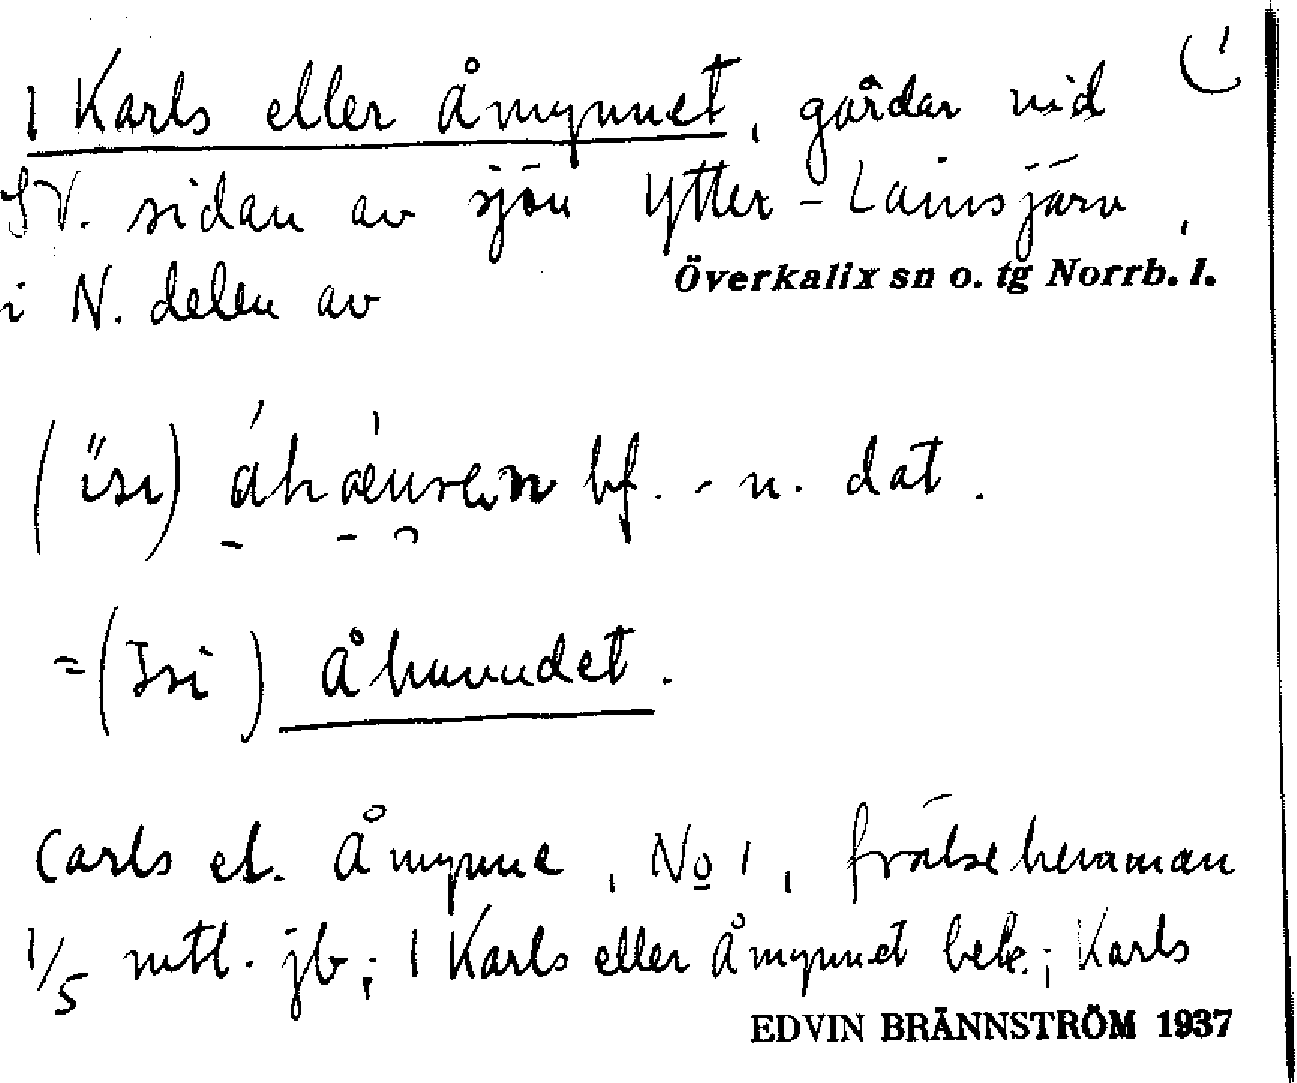 1 Karls eller Åmynnet, gårdar vid
SV. sidan av sjön Ytter-Lainsjärv,
i N. delen av Överkalix sn o. tg Norrb. l.
bf. - n. dat.
= (Isi) Åhuvudet.
Carls el. Åmynne, No 1, frälsehemman
1/5 mtl. jb; 1 Karls eller Åmynnet bek.; Karls
EDVIN BRÄNNSTRÖM 1937